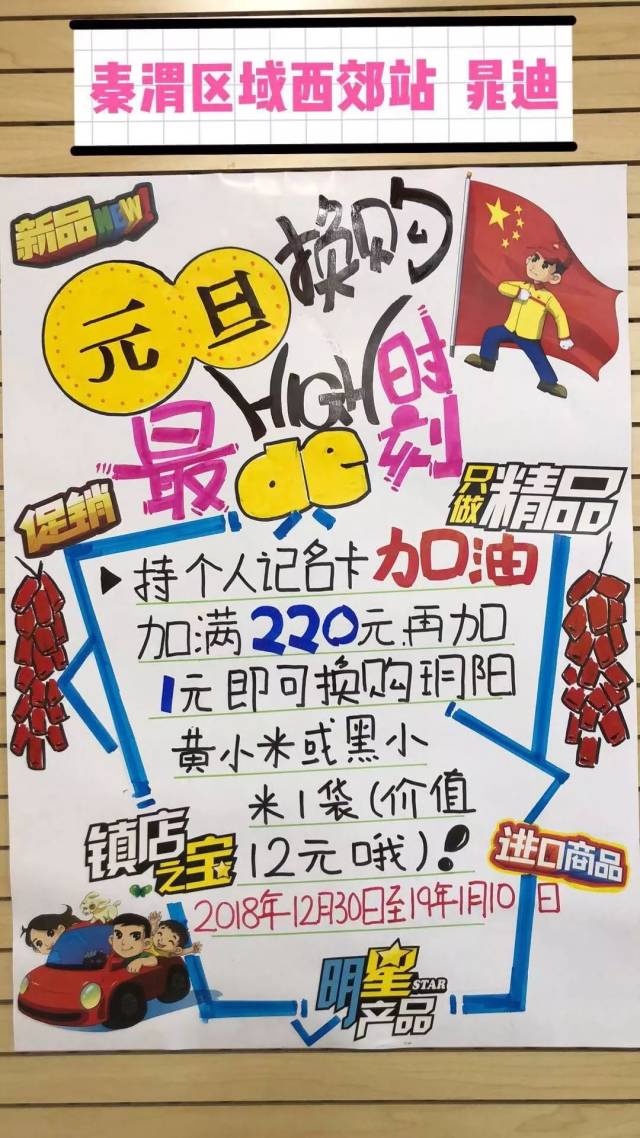 秦渭区域西郊站 晁迪
新品NEW!
元旦换购
最HIGH de时刻
促销
只做精品
▶持个人记名卡加油
加满220元再加
1元即可换购玥阳
黄小米或黑小
米1袋(价值
12元哦)!
镇店之宝
进口商品
2018年12月30日至19年1月10日
明星STAR
产品